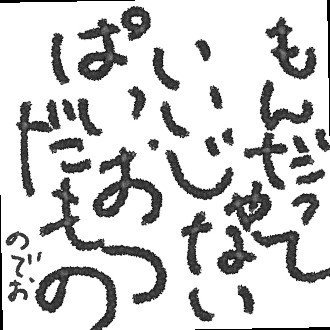 もんだって
いいじゃない
おっぱい
だもの
のでお